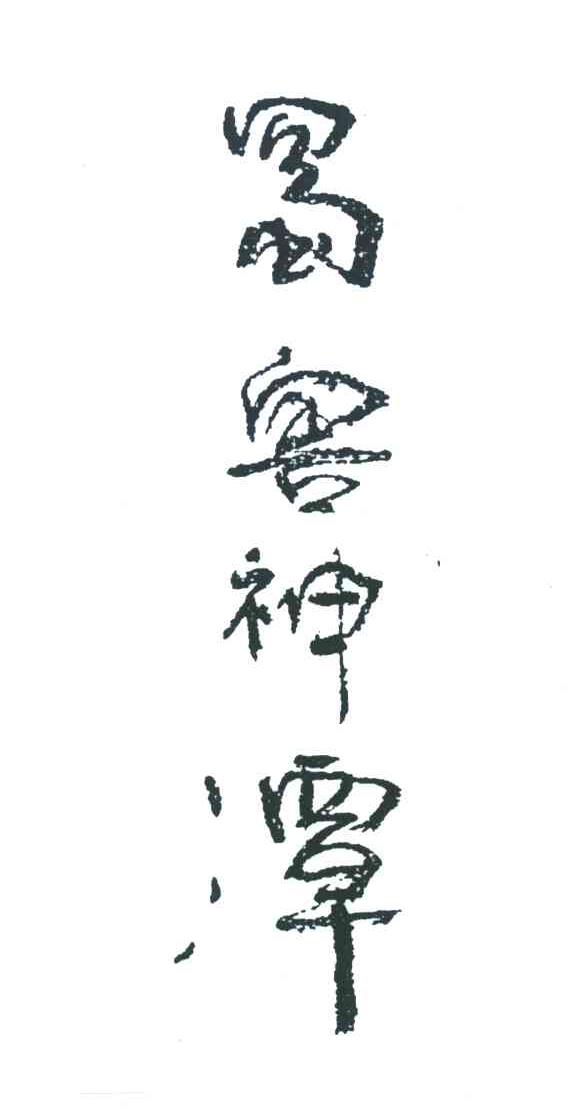 蜀窖神潭